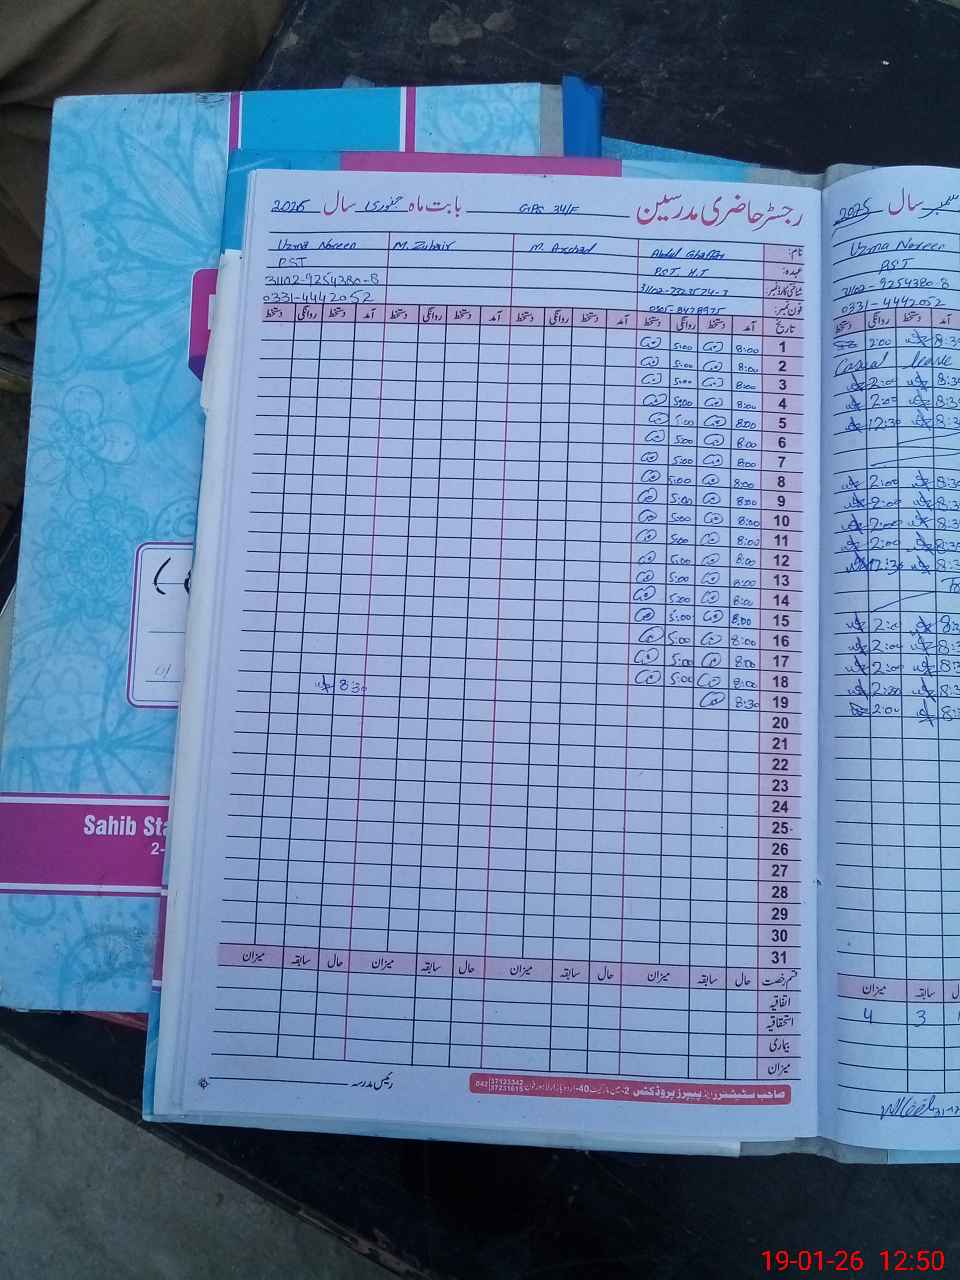 رجسٹر حاضری مدرسین GPS 34/F بابت ماہ جنوری سال 2026
نام: Abdul Ghaffar M. Arshad M. Zubair Uzma Noreen
عہدہ: PST H.T PST
شناختی کارڈ نمبر: 31102-9254380-8
فون نمبر: 0331-4442052
تاریخ آمد دستخط روانگی دستخط آمد دستخط روانگی دستخط آمد دستخط روانگی دستخط آمد دستخط روانگی دستخط
1 8:00 5:00
2 8:00 5:00
3 8:00 5:00
4 8:00 5:00
5 8:00 5:00
6 8:00 5:00
7 8:00 5:00
8 8:00 5:00
9 8:00 5:00
10 8:00 5:00
11 8:00 5:00
12 8:00 5:00
13 8:00 5:00
14 8:00 5:00
15 8:00 5:00
16 8:00 5:00
17 8:00 5:00
18 8:00 5:00
19 8:30 8:30
20
21
22
23
24
25
26
27
28
29
30
31
قسم رخصت حال سابقہ میزان حال سابقہ میزان حال سابقہ میزان حال سابقہ میزان
اتفاقیہ
استحقاقیہ
بیماری
میزان
رئیس مدرسہ
صاحب سٹیشنرز اینڈ پیپرز پروڈکٹس 2- 40-اردو بازار لاہور فون 042 37123342 37231615
سال 2025
Uzma Noreen
PST
31102-9254380-8
0331-4442052
دستخط روانگی دستخط
2:00 8:3
Casual leave
2:00 8:30
2:00 8:30
12:30 8:3
2:00 8:30
2:00 8:3
2:00 8:30
2:00 8:30
12:30 8:30
2:00 8:
2:00 8:3
2:00 8:3
2:00 8:3
2:00 8:
میزان سابقہ
4 3
Sahib Sta
2-
19-01-26 12:50